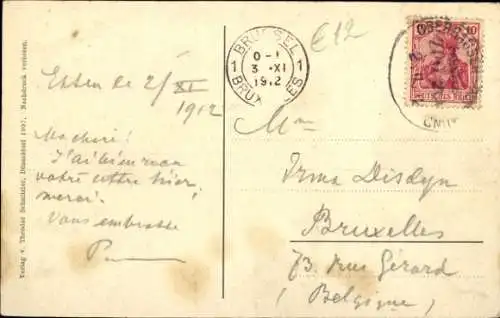 Essen le 2/XI
1912
J'ai bien reçu
votre lettre hier,
merci.
Vous embrasse
Mme
Irma Disdyn
Bruxelles
73. rue Gérard
(Belgique)
BRUSSEL
1 0-1 1
3 XI
1912
BRUX
€12
10
DEUTSCHES REICH
Verlag v. Theodor Schmidder, Düsseldorf 1907. Nachdruck verboten.